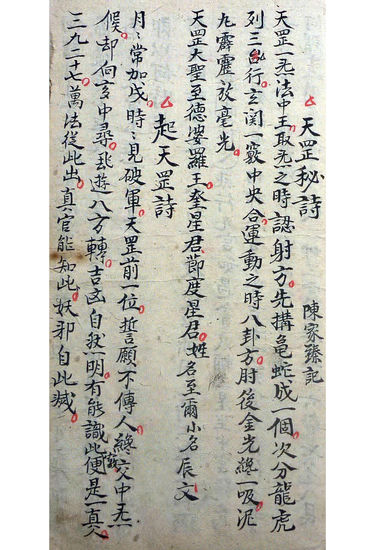 天罡秘詩
陳家臻記
天罡一炁法中王取炁之時認射方先搆龜蛇成一個次分龍虎
列三台行玄関一竅中央合運動之時八卦方肘後金光緫一吸泥
九霹靂放毫光
天罡大聖至德婆羅王奎星君節度星君姓名至爾小名辰文
起天罡詩
月〻常加戌時〻見破軍天罡前一位誓願不傳人緫文中炁
候却向亥中尋遊八方轉吉凶自然明有能識此竅便是一真人
三九二十七萬法從此出真官能知此妖邪自此滅